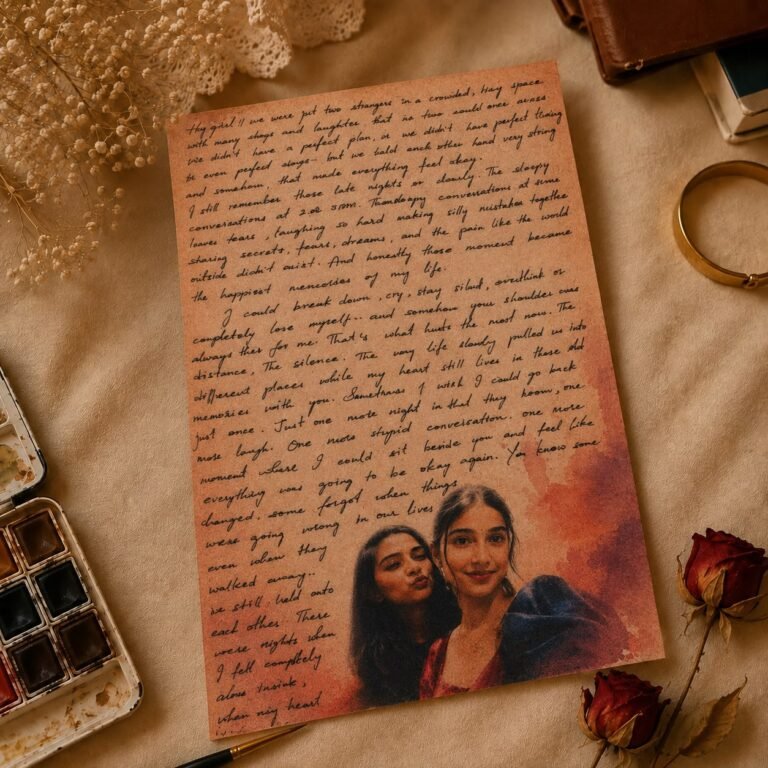 Hey girl !! we were just two strangers in a crowded, tiny space
with many chaos and laughter that no two could ever across
we didn't have a perfect plan, or we didn't have perfect timing
or even perfect always.. but we held each other hand very strong
and somehow, that made everything feel okay.
I still remember those late nights or closely. The sleepy
conversations at 2 or 3 pm. conversations at some
leaves tears, laughing so hard making silly mistakes together
sharing secrets, fears, dreams, and the pain like the world
outside didn't exist. And honestly those moment became
the happiest memories of my life.
I could break down, cry, stay silent, overthink or
completely lose myself.. and somehow your shoulder was
always ther for me. That's what hurts the most now. The
distance, The silence. The way life slowly pulled us into
different places while my heart still lives in those old
memories with you. Sometimes I wish I could go back
just once. Just one more night in that tiny room, one
more laugh. One more stupid conversation. one more
moment where I could sit beside you and feel like
everything was going to be okay again. You know some
changed, some forgot when things
were going wrong in our lives
even when they
walked away..
we still held onto
each other. There
were nights when
I fell completely
alone inside,
when my heart